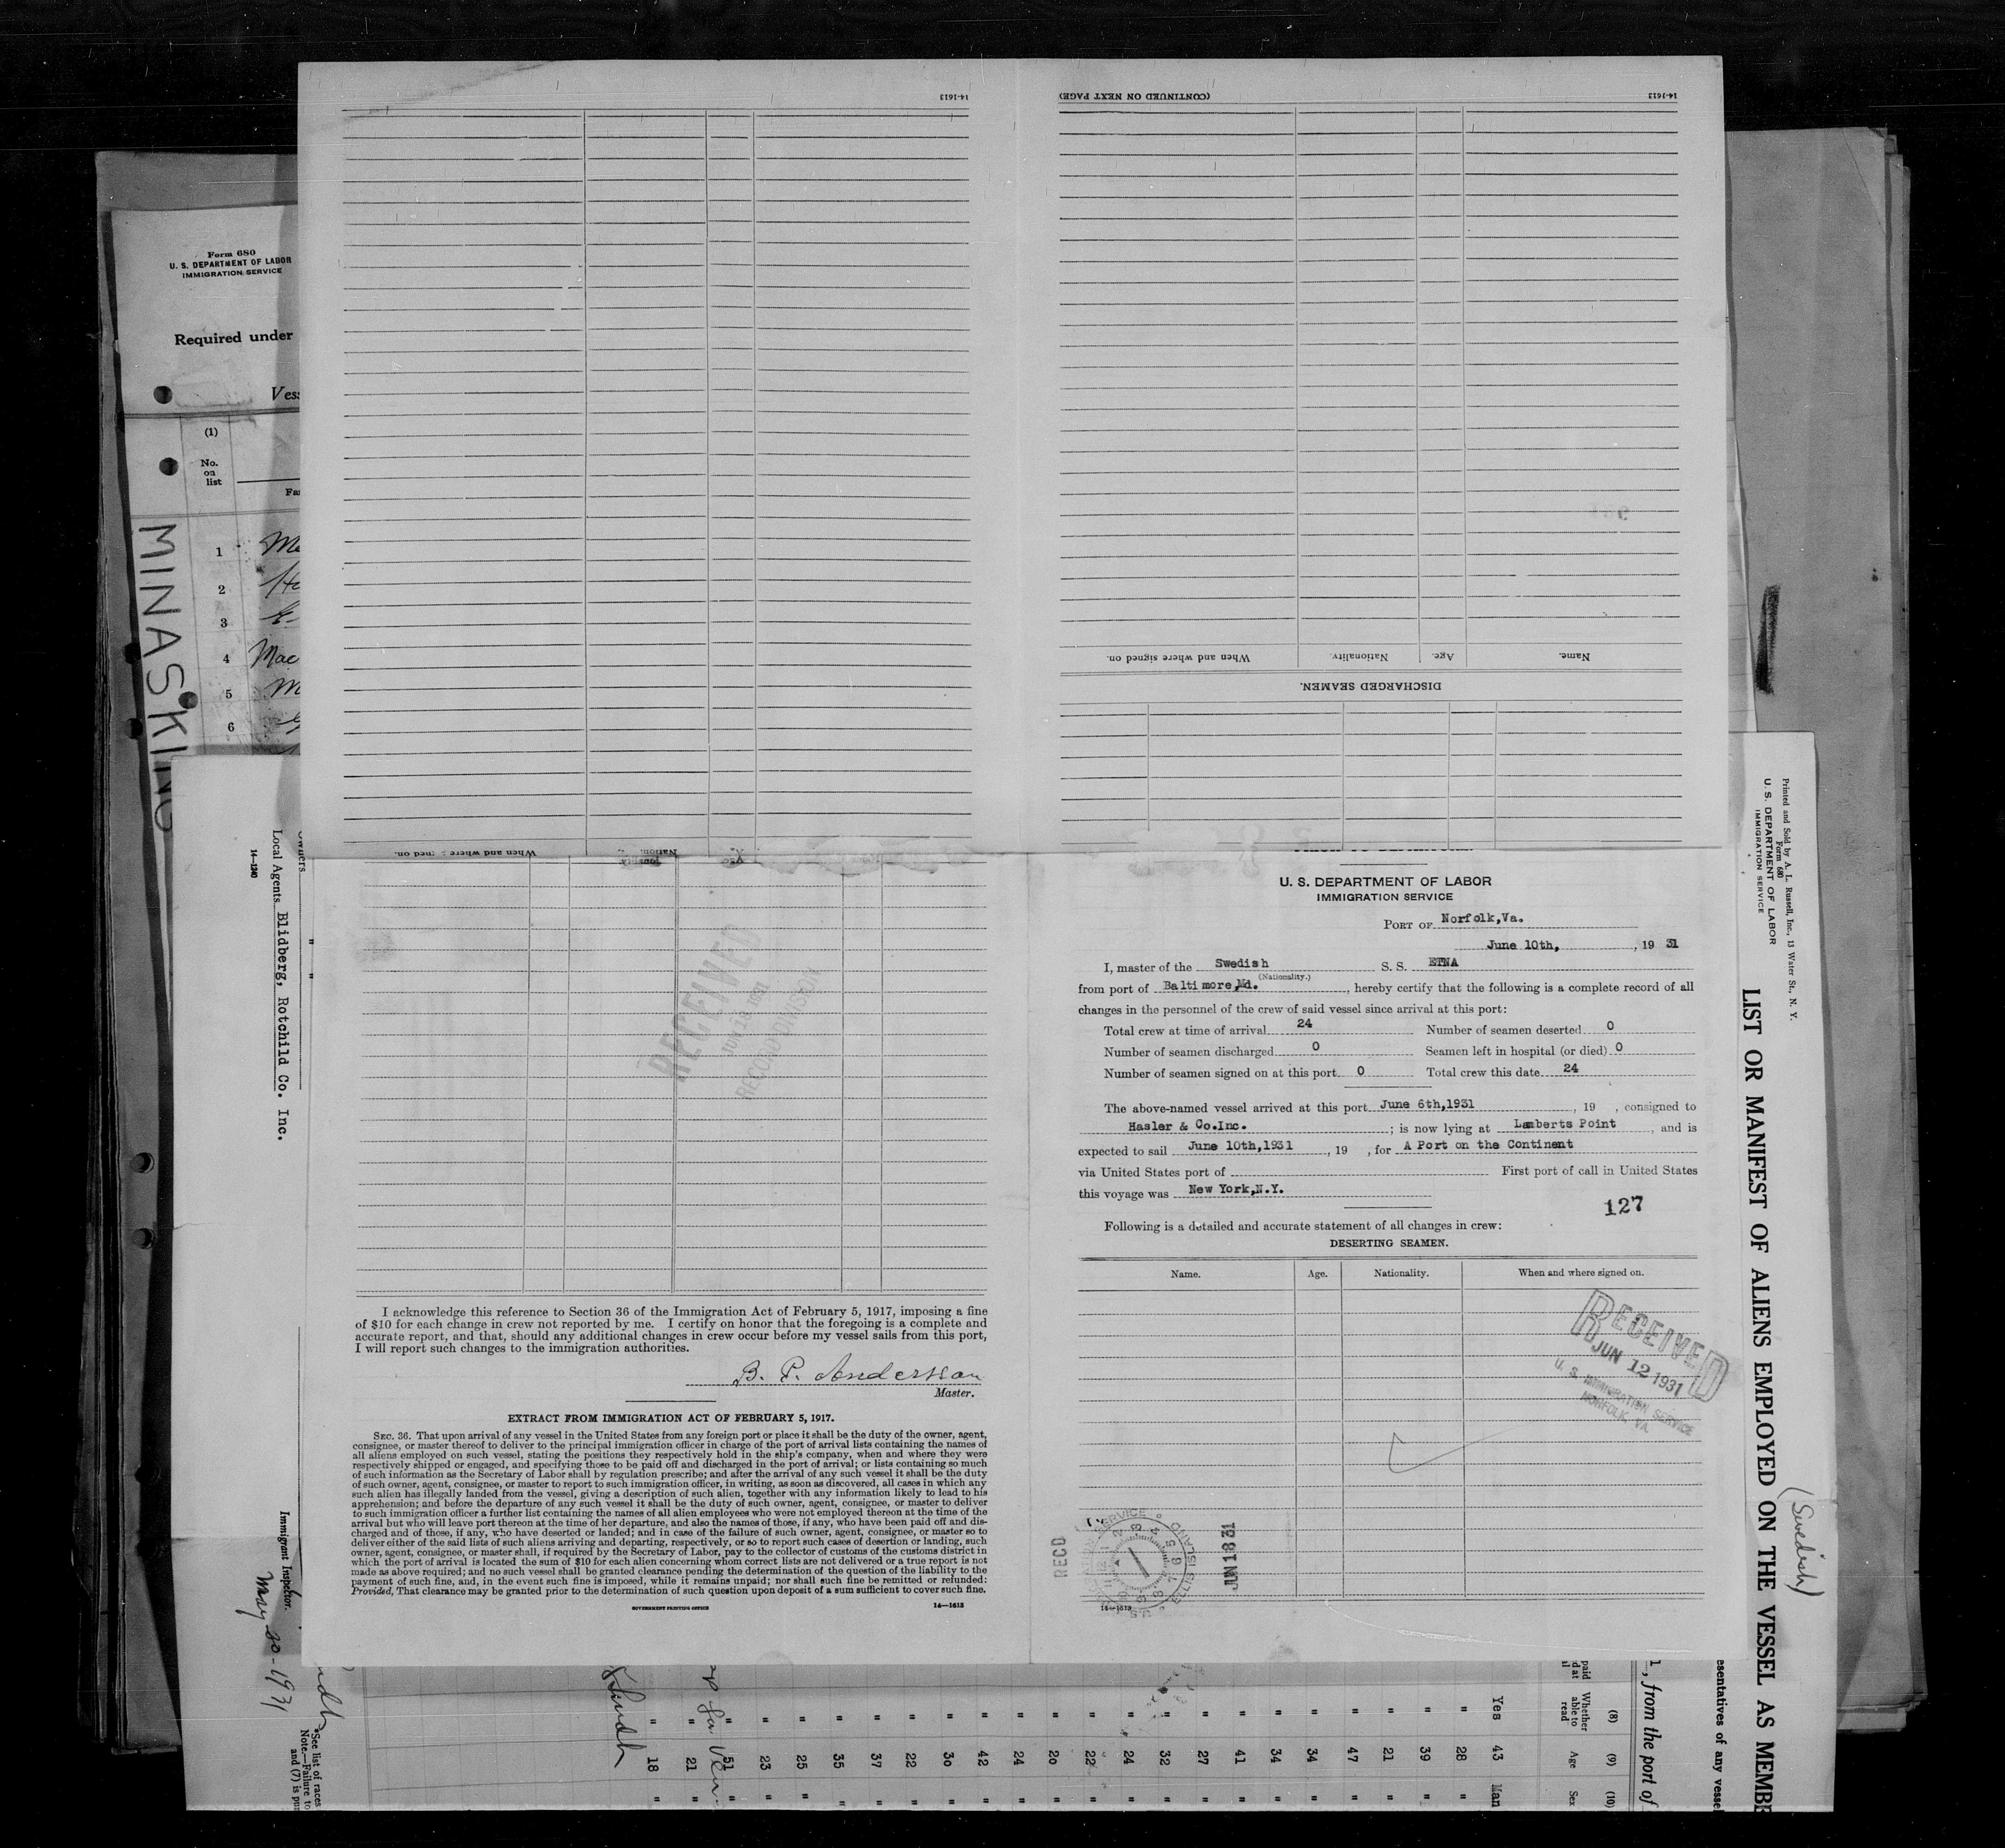 14-1613
(CONTINUED ON NEXT PAGE)
14-1613
Name.
Age.
Nationality.
When and where signed on.
DISCHARGED SEAMEN.
Form 680
U. S. DEPARTMENT OF LABOR
IMMIGRATION SERVICE
Required under
(1)
No.
on
list
1
2
3
4 Mac
5
6
MINASKING
Local Agents Blidberg, Rotchild Co. Inc.
14-1240
Immigrant Inspector.
May 30-1931
RECEIVED
RECORD DIVISION
I acknowledge this reference to Section 36 of the Immigration Act of February 5, 1917, imposing a fine
of $10 for each change in crew not reported by me. I certify on honor that the foregoing is a complete and
accurate report, and that, should any additional changes in crew occur before my vessel sails from this port,
I will report such changes to the immigration authorities.
B. P. Andersson
Master.
EXTRACT FROM IMMIGRATION ACT OF FEBRUARY 5, 1917.
SEC. 36. That upon arrival of any vessel in the United States from any foreign port or place it shall be the duty of the owner, agent,
consignee, or master thereof to deliver to the principal immigration officer in charge of the port of arrival lists containing the names of
all aliens employed on such vessel, stating the positions they respectively hold in the ship's company, when and where they were
respectively shipped or engaged, and specifying those to be paid off and discharged in the port of arrival; or lists containing so much
of such information as the Secretary of Labor shall by regulation prescribe; and after the arrival of any such vessel it shall be the duty
of such owner, agent, consignee, or master to report to such immigration officer, in writing, as soon as discovered, all cases in which any
such alien has illegally landed from the vessel, giving a description of such alien, together with any information likely to lead to his
apprehension; and before the departure of any such vessel it shall be the duty of such owner, agent, consignee, or master to deliver
to such immigration officer a further list containing the names of all alien employees who were not employed thereon at the time of the
arrival but who will leave port thereon at the time of her departure, and also the names of those, if any, who have been paid off and dis-
charged and of those, if any, who have deserted or landed; and in case of the failure of such owner, agent, consignee, or master so to
deliver either of the said lists of such aliens arriving and departing, respectively, or so to report such cases of desertion or landing, such
owner, agent, consignee, or master shall, if required by the Secretary of Labor, pay to the collector of customs of the customs district in
which the port of arrival is located the sum of $10 for each alien concerning whom correct lists are not delivered or a true report is not
made as above required; and no such vessel shall be granted clearance pending the determination of the question of the liability to the
payment of such fine, and, in the event such fine is imposed, while it remains unpaid; nor shall such fine be remitted or refunded:
Provided, That clearance may be granted prior to the determination of such question upon deposit of a sum sufficient to cover such fine.
GOVERNMENT PRINTING OFFICE
14-1613
U. S. DEPARTMENT OF LABOR
IMMIGRATION SERVICE
PORT OF Norfolk,Va.
June 10th, , 19 31
I, master of the Swedish S. S. ETNA
(Nationality.)
from port of Baltimore,Md. , hereby certify that the following is a complete record of all
changes in the personnel of the crew of said vessel since arrival at this port:
Total crew at time of arrival 24 Number of seamen deserted 0
Number of seamen discharged 0 Seamen left in hospital (or died) 0
Number of seamen signed on at this port 0 Total crew this date 24
The above-named vessel arrived at this port June 6th,1931 , 19 , consigned to
Hasler & Co.Inc. ; is now lying at Lamberts Point , and is
expected to sail June 10th,1931 , 19 , for A Port on the Continent
via United States port of First port of call in United States
this voyage was New York,N.Y.
127
Following is a detailed and accurate statement of all changes in crew:
DESERTING SEAMEN.
Name. Age. Nationality. When and where signed on.
RECEIVED
JUN 12 1931
U. S. IMMIGRATION SERVICE
NORFOLK, VA.
RECD
ELLIS ISLAND
JUN 18 31
14-1613
Printed and Sold by A. L. Russell, Inc., 13 Water St., N. Y.
Form 680
U. S. DEPARTMENT OF LABOR
IMMIGRATION SERVICE
LIST OR MANIFEST OF ALIENS EMPLOYED ON THE VESSEL AS MEMB
(Swedish)
esentatives of any vessel
, from the port of
(8) (9) (10)
Whether able to read Age Sex
Yes 43 Man
" 28 "
" 39 "
" 21 "
" 47 "
" 34 "
" 34 "
" 41 "
" 27 "
" 32 "
" 24 "
" 22 "
" 20 "
" 24 "
" 42 "
" 30 "
" 22 "
" 37 "
" 35 "
" 25 "
" 23 "
" 51 "
" 21 "
" 18 "
See list of races
Note.—Failure to